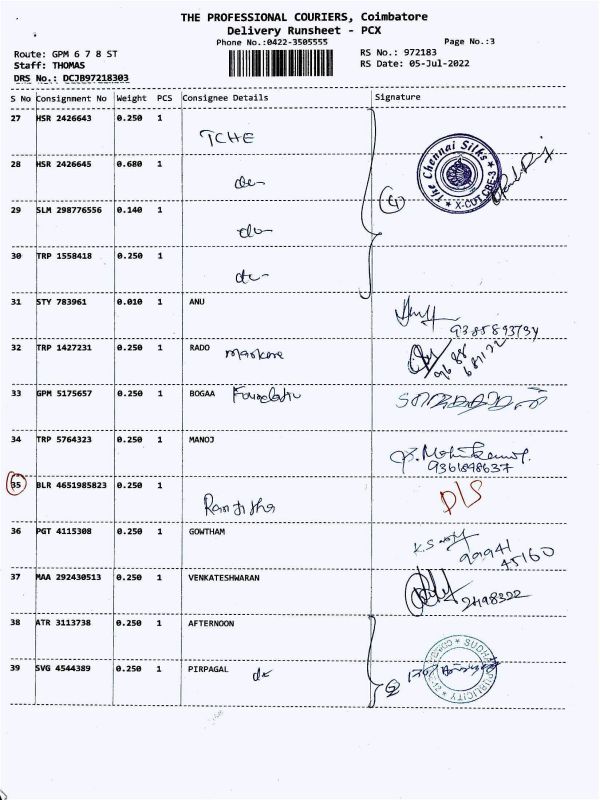 THE PROFESSIONAL COURIERS, Coimbatore
Delivery Runsheet - PCX
Phone No.:0422-3505555
Page No.:3
Route: GPM 6 7 8 ST
RS No.: 972183
Staff: THOMAS
RS Date: 05-Jul-2022
DRS No.: DCJB97218303
S No Consignment No Weight PCS Consignee Details Signature
27 HSR 2426643 0.250 1
TCHE
The Chennai Silks
X-CUT CBE-3
28 HSR 2426645 0.680 1
do-
4
29 SLM 298776556 0.140 1
do-
30 TRP 1558418 0.250 1
do-
31 STY 783961 0.010 1 ANU
32 TRP 1427231 0.250 1 RADO
33 GPM 5175657 0.250 1 BOGAA Foundation
34 TRP 5764323 0.250 1 MANOJ
9361898637
35 BLR 4651985823 0.250 1
D/S
36 PGT 4115308 0.250 1 GOWTHAM
99941
45160
37 MAA 292430513 0.250 1 VENKATESHWARAN
2498322
38 ATR 3113738 0.250 1 AFTERNOON
39 SVG 4544389 0.250 1 PIRPAGAL do
SUDHA PUBLICITY